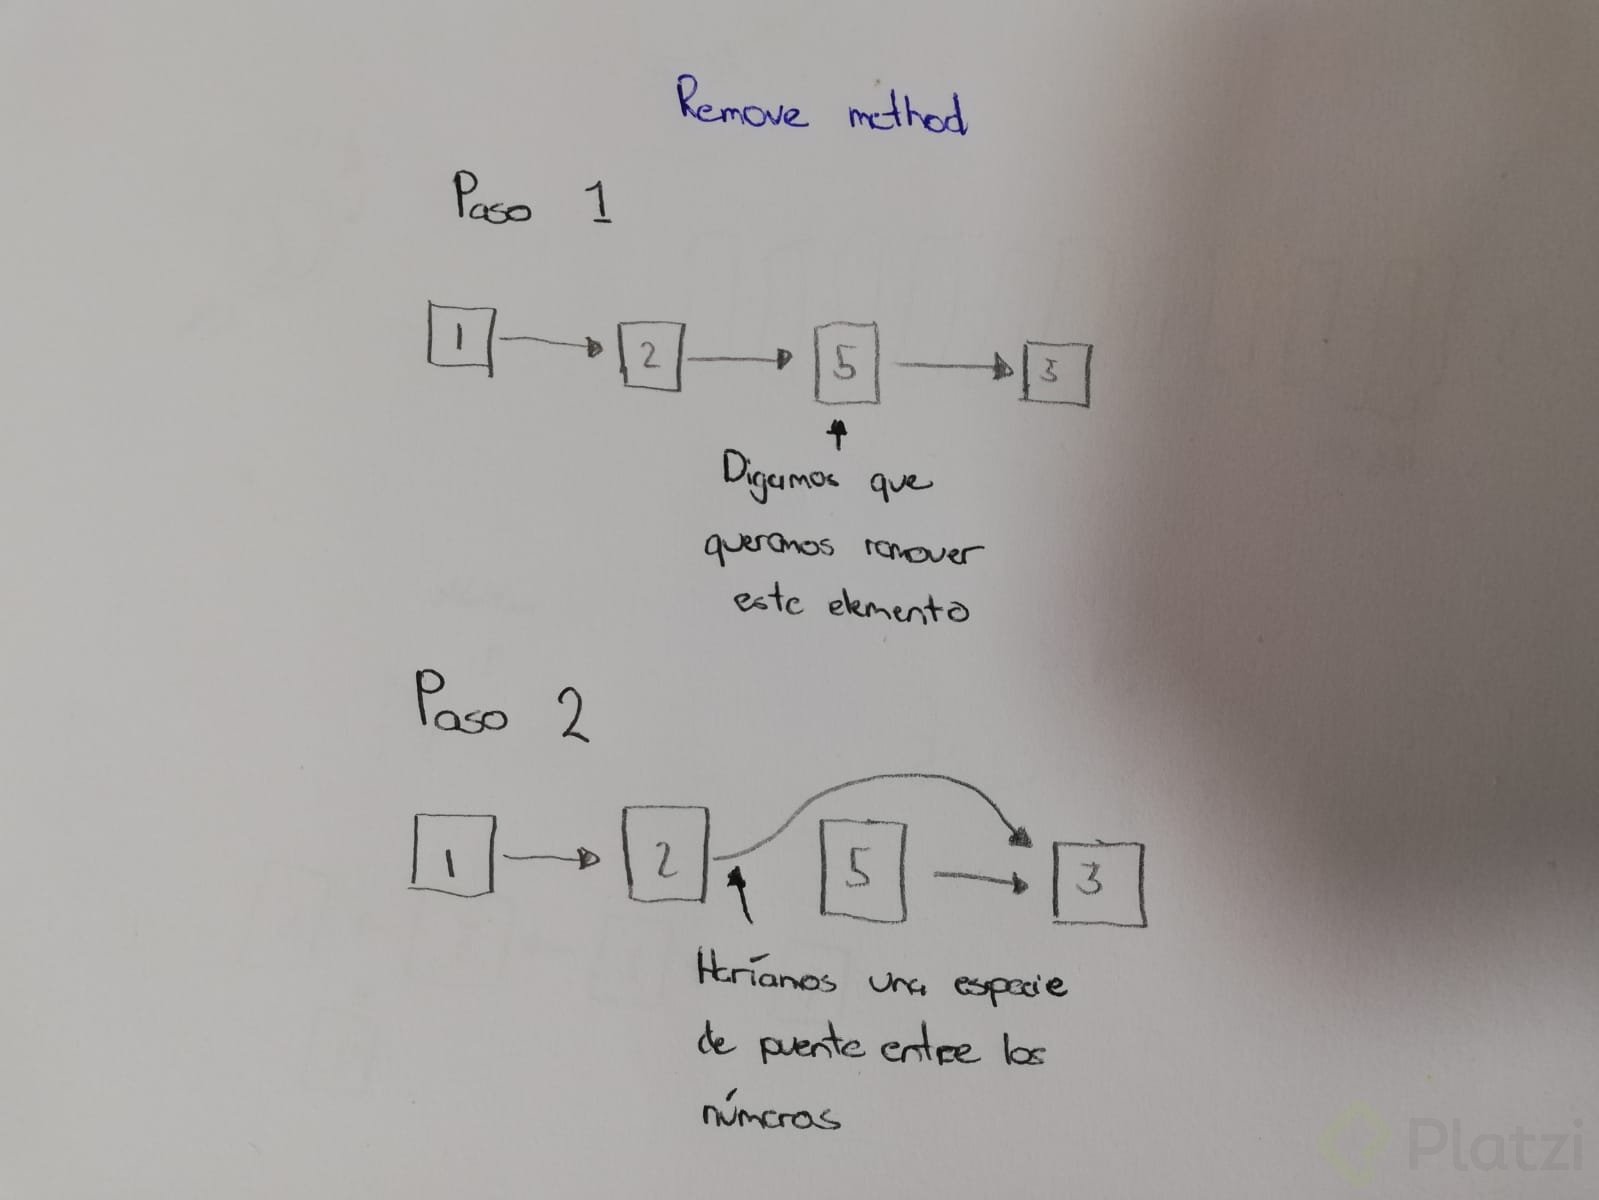 Remove method
Paso 1
1 2 5 3
Digamos que
queremos remover
este elemento
Paso 2
1 2 5 3
Haríamos una especie
de puente entre los
números
Platzi